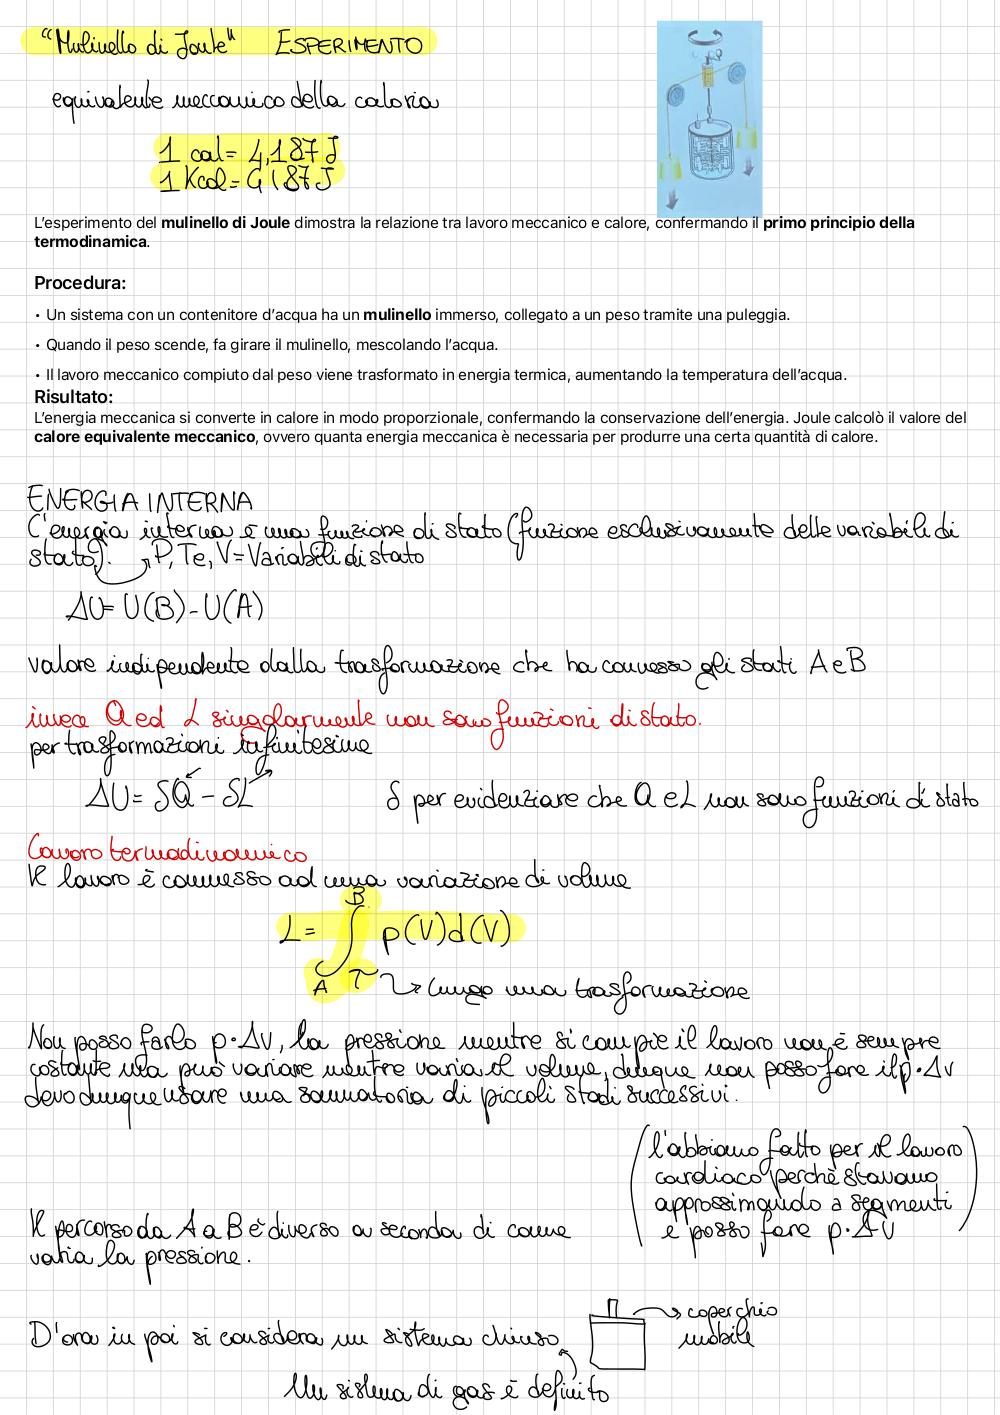 "Mulinello di Joule" ESPERIMENTO
equivalente meccanico della caloria
1 cal = 4,187 J
1 Kcal = 4187 J
L'esperimento del mulinello di Joule dimostra la relazione tra lavoro meccanico e calore, confermando il primo principio della
termodinamica.
Procedura:
• Un sistema con un contenitore d'acqua ha un mulinello immerso, collegato a un peso tramite una puleggia.
• Quando il peso scende, fa girare il mulinello, mescolando l'acqua.
• Il lavoro meccanico compiuto dal peso viene trasformato in energia termica, aumentando la temperatura dell'acqua.
Risultato:
L'energia meccanica si converte in calore in modo proporzionale, confermando la conservazione dell'energia. Joule calcolò il valore del
calore equivalente meccanico, ovvero quanta energia meccanica è necessaria per produrre una certa quantità di calore.
ENERGIA INTERNA
L'energia interna è una funzione di stato (funzione esclusivamente delle variabili di
stato). P, T e, V = Variabili di stato
ΔU = U(B) - U(A)
valore indipendente dalla trasformazione che ha connesso gli stati A e B
invece Q ed L singolarmente non sono funzioni di stato.
per trasformazioni infinitesime
ΔU = δQ - δL δ per evidenziare che Q e L non sono funzioni di stato
Lavoro termodinamico
Il lavoro è connesso ad una variazione di volume
B
L = ∫ p(V)d(V)
A τ ↳ lungo una trasformazione
Non posso farlo p·Δv, la pressione mentre si compie il lavoro non è sempre
costante ma può variare mentre varia il volume, dunque non posso fare il p·Δv
devo dunque usare una sommatoria di piccoli stadi successivi.
(l'abbiamo fatto per il lavoro
cardiaco perchè stavamo
approssimando a segmenti
e posso fare p·ΔV)
Il percorso da A a B è diverso a seconda di come
varia la pressione.
→ coperchio
mobile
D'ora in poi si considera un sistema chiuso
Un sistema di gas è definito